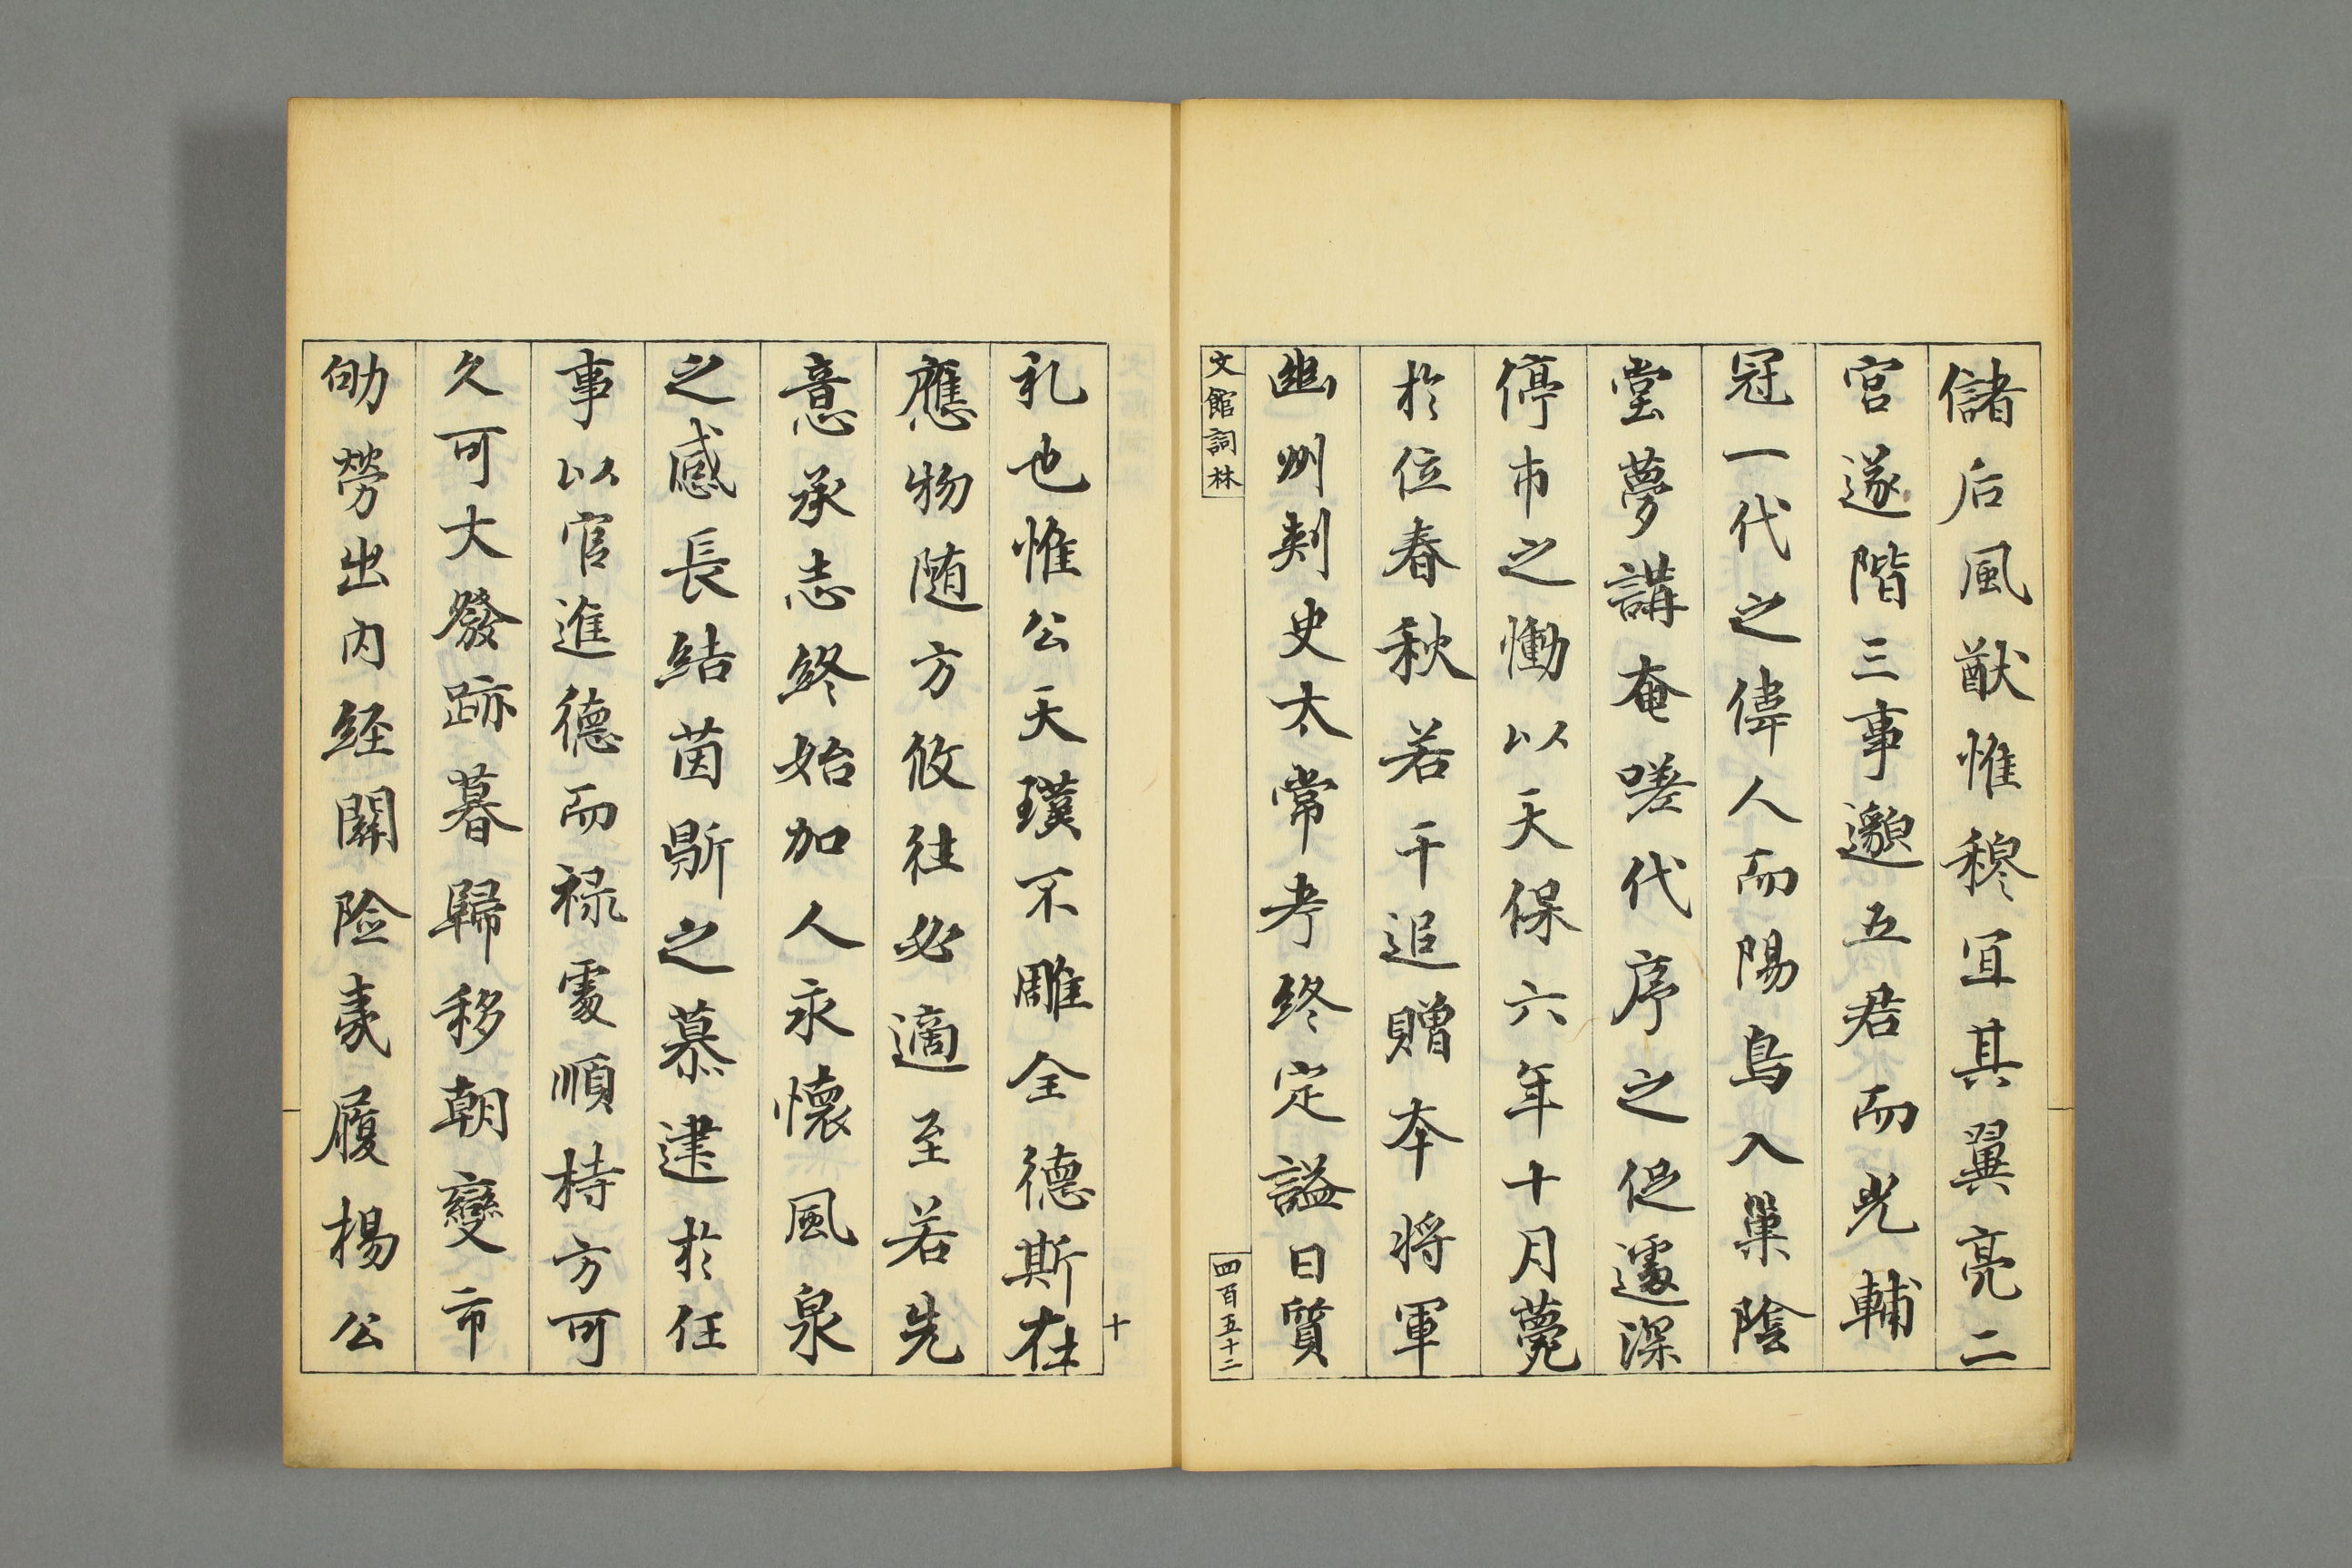 儲后風猷惟穆宜其翼亮二
宮遂階三事邈五君而光輔
冠一代之偉人而陽鳥入巢陰
堂夢講奄嗟代序之促遽深
停市之慟以天保六年十月薨
於位春秋若干追贈本將軍
幽州刺史太常考終定謚曰質
文館詞林
四百五十二
礼也惟公天璞不雕全德斯在
應物随方攸往必適至若先
意承志終始加人永懷風泉
之感長結茵𣂺之慕逮於任
事以官進德而禄處順持方可
久可大發跡暮歸移朝變市
劬勞出内経關險夷履楊公
十